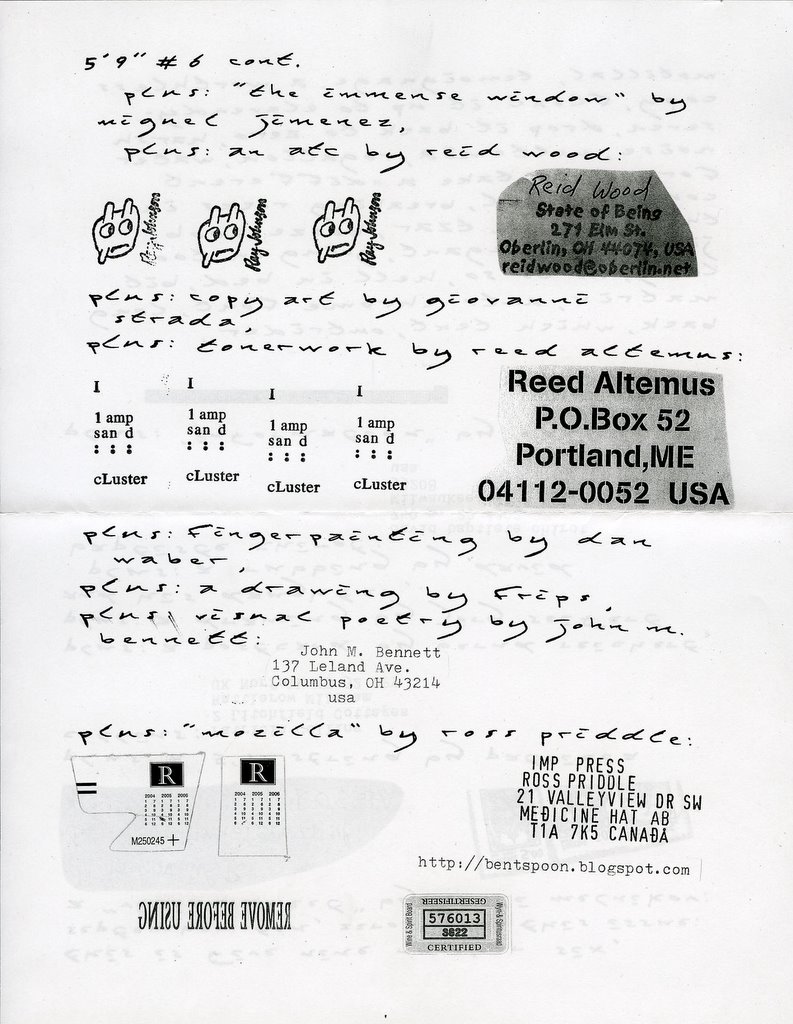 5'9" # 6 cont.
plus: "the immense window" by
miguel jimenez,
plus: an atc by reid wood:
Ray Johnson
Ray Johnson
Ray Johnson
Reid Wood
State of Being
271 Elm St.
Oberlin, OH 44074, USA
reidwood@oberlin.net
plus: copy art by giovanni
strada,
plus: tonerwork by reed altemus:
I I I I
1 amp 1 amp 1 amp 1 amp
san d san d san d san d
: : : : : : : : : : : :
cLuster cLuster cLuster cLuster
Reed Altemus
P.O.Box 52
Portland,ME
04112-0052 USA
plus: fingerpainting by dan
waber,
plus: a drawing by frips,
plus: visual poetry by john m.
bennett:
John M. Bennett
137 Leland Ave.
Columbus, OH 43214
usa
plus: "mozilla" by ross priddle:
R R
2004 2005 2006 2004 2005 2006
M250245 +
IMP PRESS
ROSS PRIDDLE
21 VALLEYVIEW DR SW
MEDICINE HAT AB
T1A 7K5 CANADA
http://bentspoon.blogspot.com
REMOVE BEFORE USING
GESERTIFISEER
Wine & Spirit Board
576013
3622
Wyn & Spiritusraad
CERTIFIED